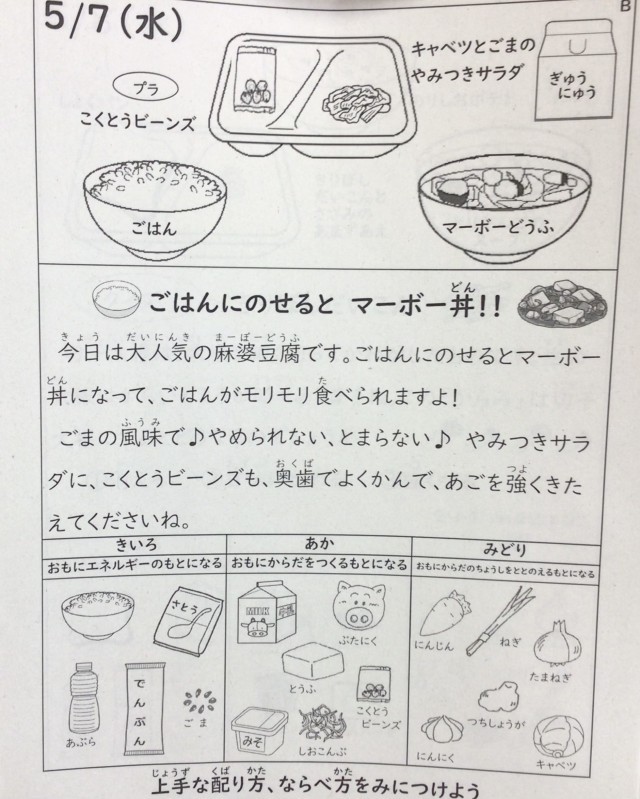 5/7(水)
B
プラ
こくとうビーンズ
キャベツとごまの
やみつきサラダ
ぎゅう
にゅう
ごはん
マーボーどうふ
ごはんにのせると マーボー丼!!
どん
きょう だいにんき まーぼーどうふ
今日は大人気の麻婆豆腐です。ごはんにのせるとマーボー
どん た
丼になって、ごはんがモリモリ食べられますよ!
ふうみ
ごまの風味で♪やめられない、とまらない♪ やみつきサラ
おくば つよ
ダに、こくとうビーンズも、奥歯でよくかんで、あごを強くきた
えてくださいね。
きいろ
おもにエネルギーのもとになる
さとう
あぶら
でんぷん
ごま
あか
おもにからだをつくるもとになる
MILK
牛乳
ぶたにく
とうふ
こくとう
ビーンズ
みそ
しおこんぶ
みどり
おもにからだのちょうしをととのえるもとになる
にんじん
ねぎ
たまねぎ
つちしょうが
にんにく
キャベツ
じょうず くば かた かた
上手な配り方、ならべ方をみにつけよう